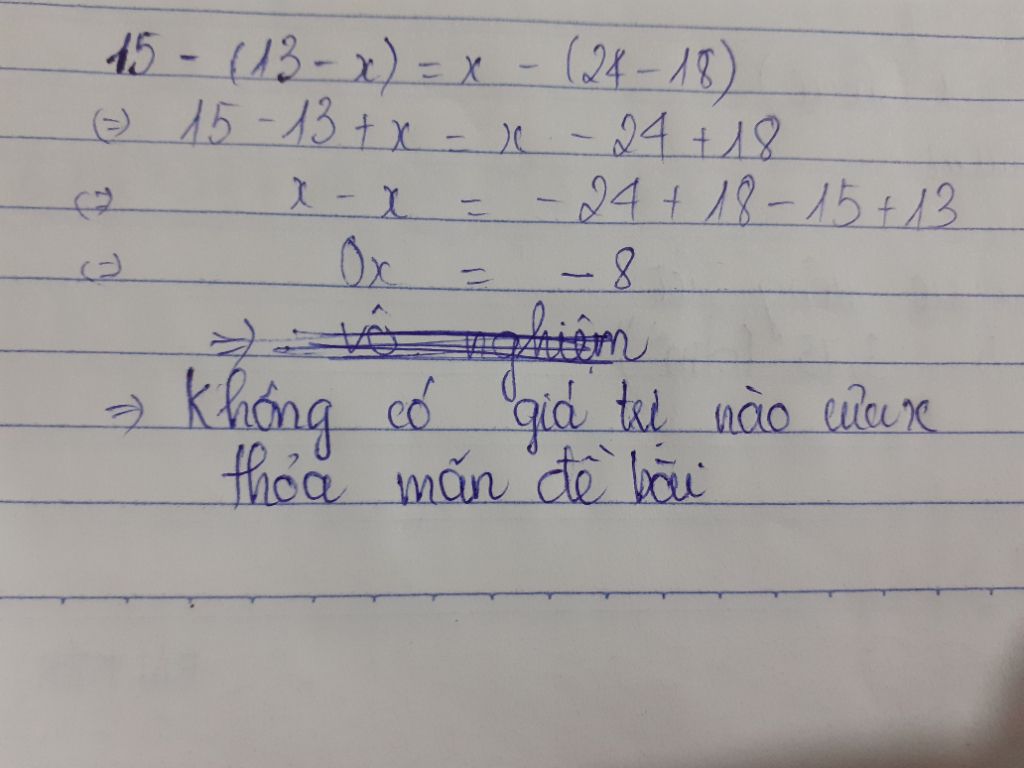 15 - (13 - x) = x - (24 - 18)
(=) 15 - 13 + x = x - 24 + 18
(=) x - x = - 24 + 18 - 15 + 13
(=) 0x = - 8
=> vô nghiệm
=> Không có giá trị nào của x
thỏa mãn đề bài